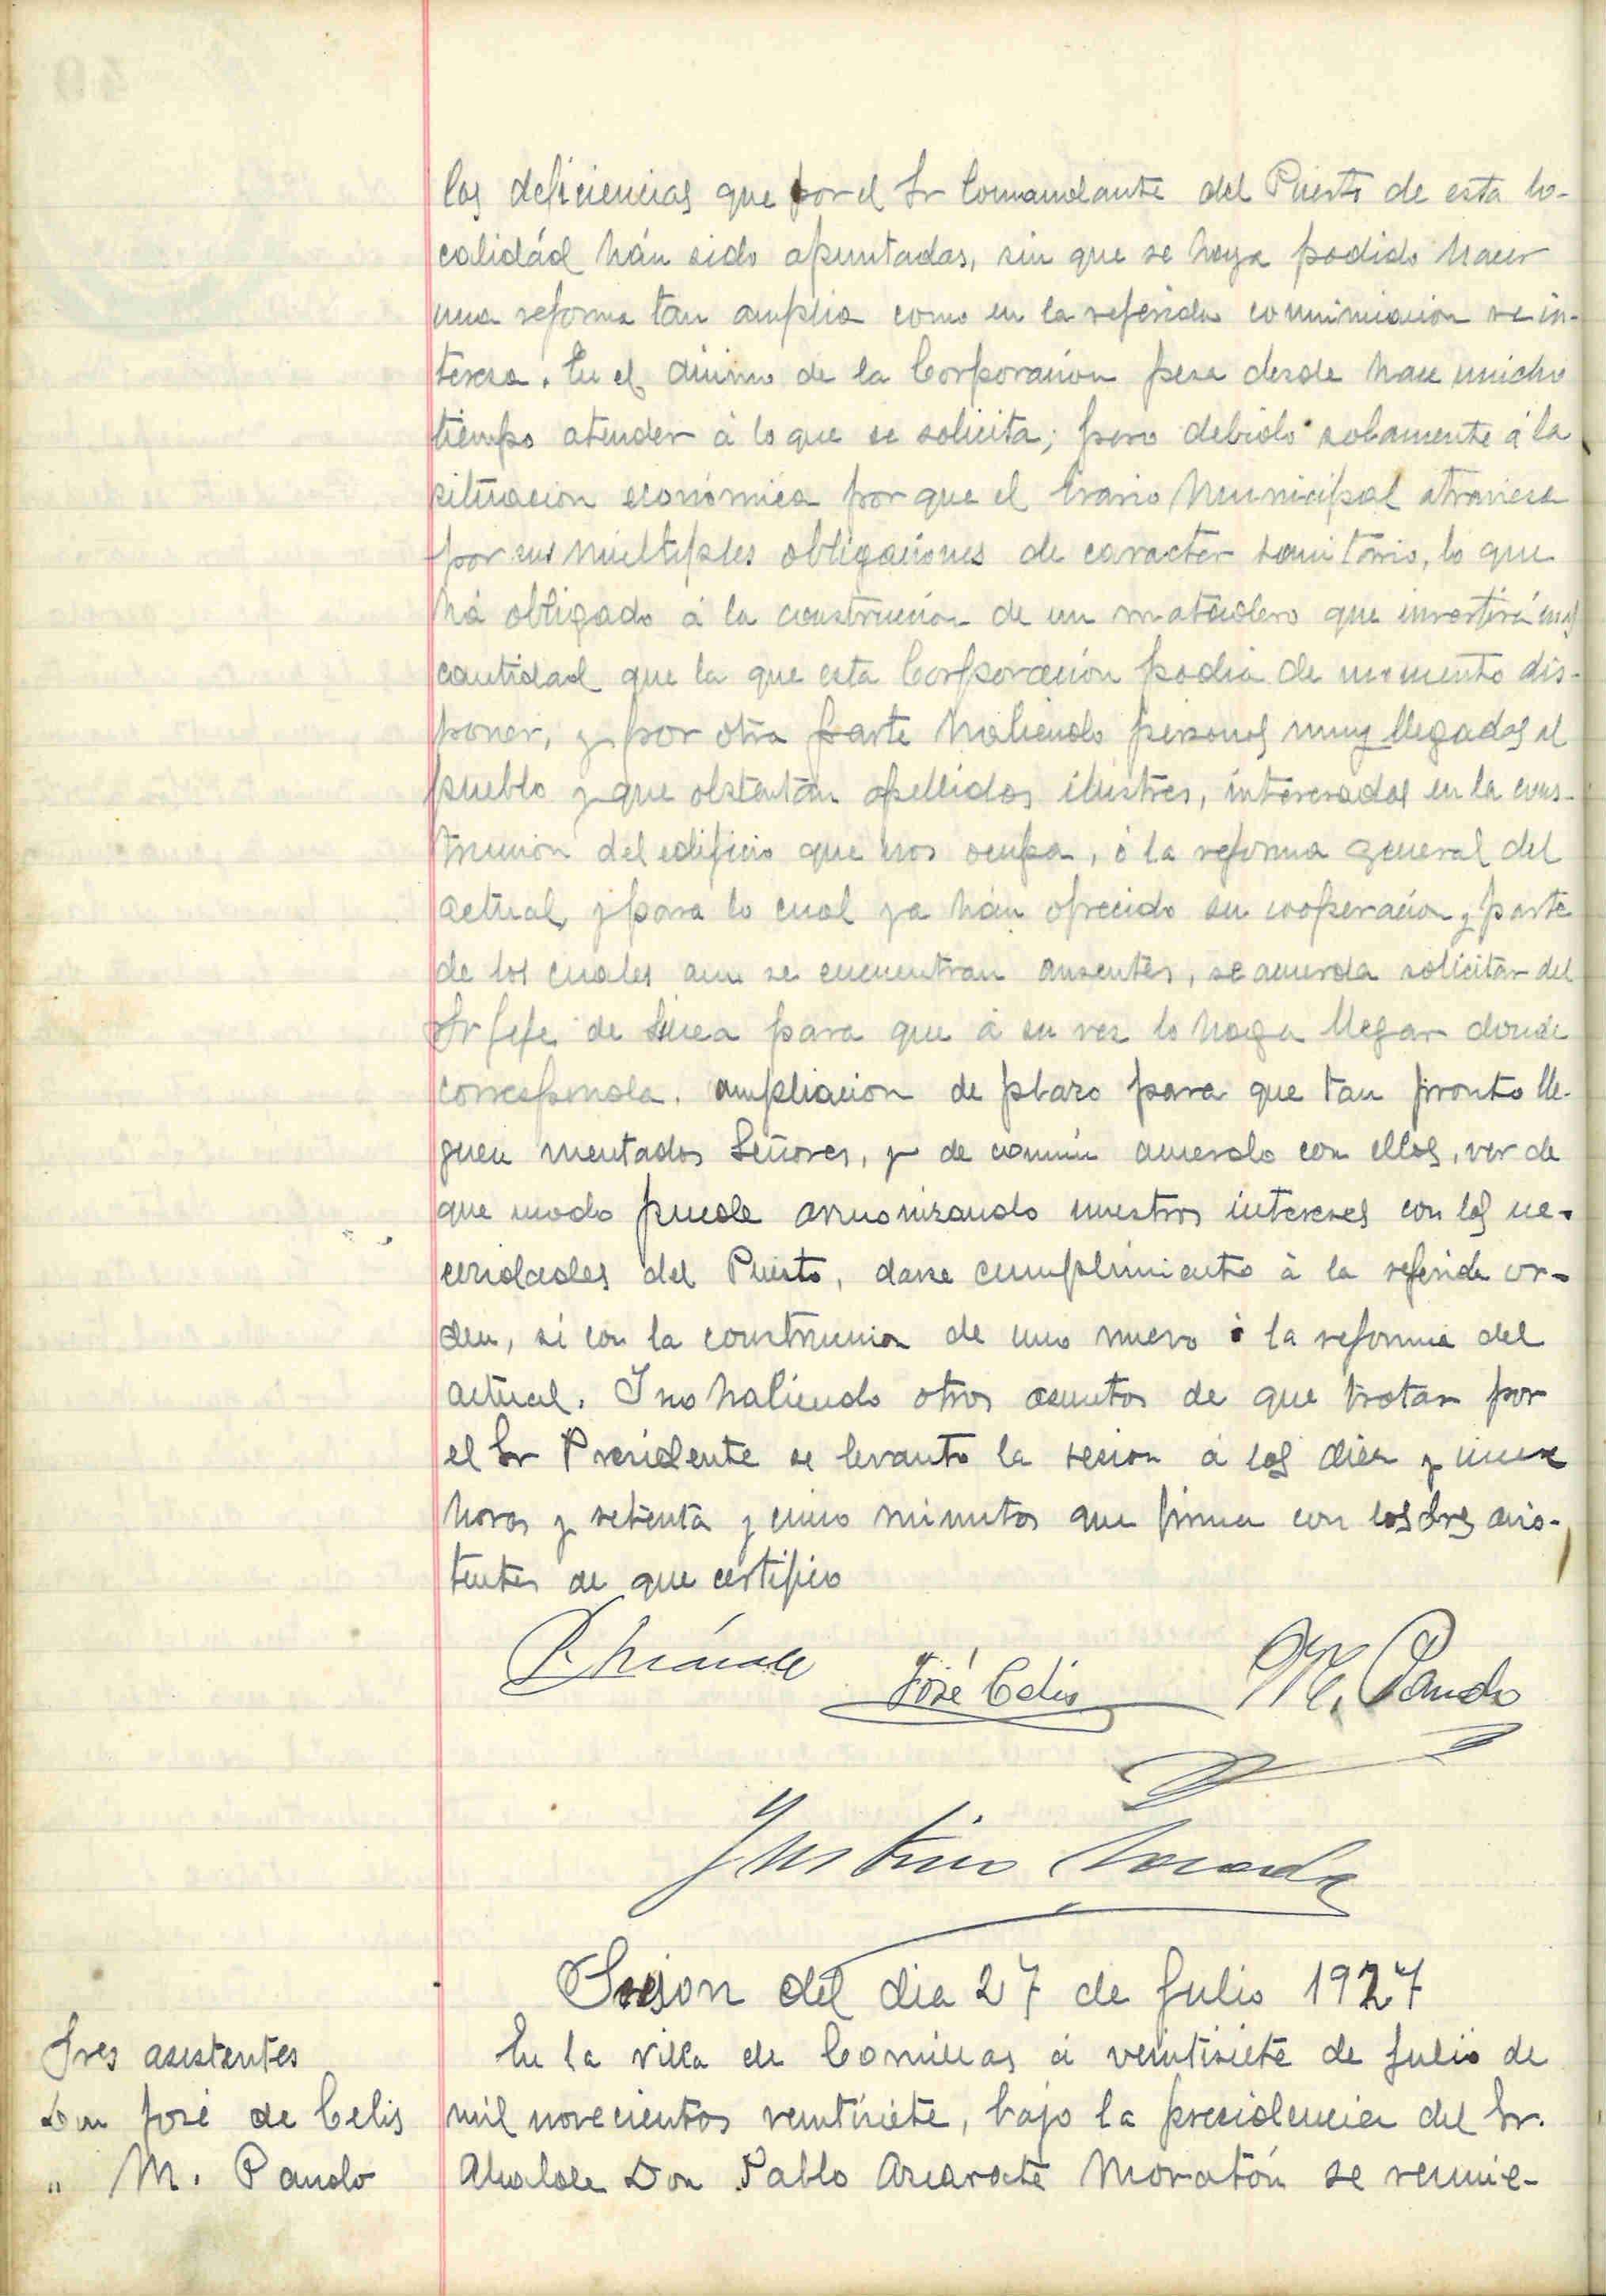 las deficiencias que por el Sr Comandante del Puesto de esta lo-
calidád hán sido apuntadas, sin que se haya podido hacer
una reforma tan amplia como en la referida comunicacion se in-
teresa. En el ánimo de la Corporación pesa desde hace mucho
tiempo atender á lo que se solicita; pero debido solamente á la
situacion económica por que el Erario Municipal atraviesa
por sus múltiples obligaciones de caracter sanitario, lo que
há obligado á la construcción de un matadero que invertirá mas
cantidad que la que esta Corporación podia de momento dis-
poner, y por otra parte habiendo personas muy llegadas al
pueblo y que obstentan apellidos ilustres, interesadas en la cons-
trucción del edificio que nos ocupa, ó la reforma general del
actual, y para lo cual ya hán ofrecido su cooperación y parte
de los cuales aun se encuentran ausentes, se acuerda solicitar del
Sr Jefe de Linea para que á su vez lo haga llegar donde
corresponda, ampliacion de plazo para que tan pronto lle-
guen mentados Señores, y de común acuerdo con ellos, ver de
que modo puede armonizando nuestros intereses con las ne-
cesidades del Puesto, darse cumplimiento á la referida or-
den, si con la construccion de uno nuevo ó la reforma del
actual. Y no habiendo otros asuntos de que tratar por
el Sr Presidente se levanto la sesion á las diez y nueve
horas y setenta y cinco minutos que firma con los Sres asis-
tentes de que certifico
José Celis M. Pando
Justino
Sesion del dia 27 de Julio 1927
Sres asistentes
Don José de Celis
" M. Pando
En la villa de Comillas á veintisiete de Julio de
mil novecientos veintisiete, bajo la presidencia del Sr.
Alcalde Don Pablo Azcarate Moratón se reunie-